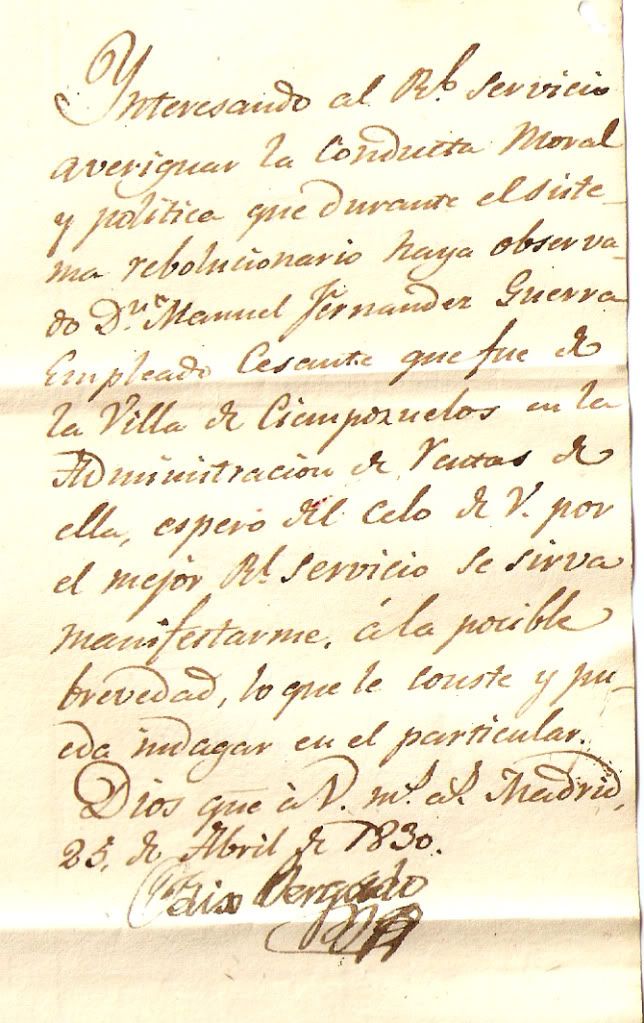 Ynteresando al Rl. servicio
averiguar la Conducta Moral
y politica que durante el siste-
ma rebolucionario haya observa-
do Dn. Manuel Fernandez Guerra
Empleado Cesante que fue de
la Villa de Ciempozuelos en la
Administracion de Rentas de
ella, espero del celo de V. por
el mejor Rl. servicio se sirva
manifestarme, á la pocible
brevedad, lo que le conste y pu-
eda indagar en el particular.
Dios gue. à V. ms. as. Madrid,
25, de Abril de 1830.